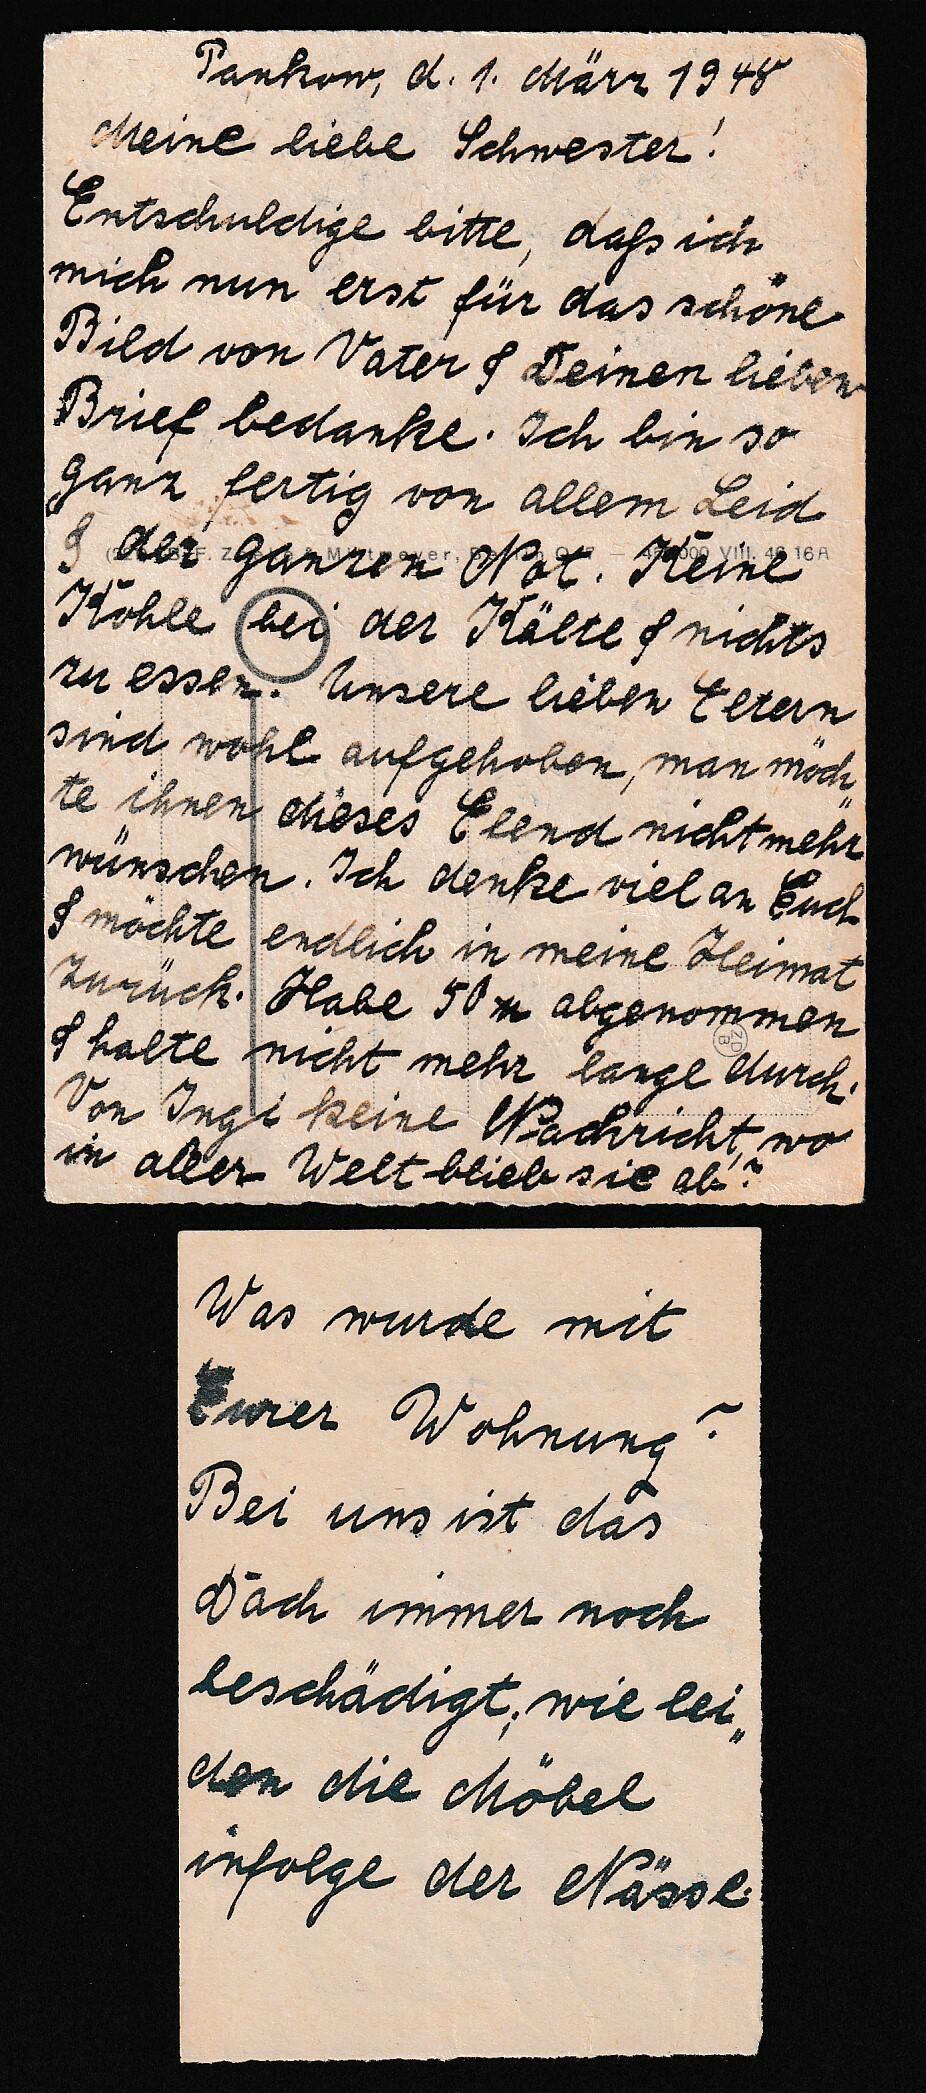 Pankow, d. 1. März 1948
Meine liebe Schwester!
Entschuldige bitte, daß ich
mich nun erst für das schöne
Bild von Vater & Deinen lieben
Brief bedanke. Ich bin so
ganz fertig von allem Leid
& der ganzen Not. Keine
Kohle bei der Kälte & nichts
zu essen. Unsere lieben Eltern
sind wohl aufgehoben, man möch„
te ihnen dieses Elend nicht mehr
wünschen. Ich denke viel an Euch
& möchte endlich in meine Heimat
zurück. Habe 50 abgenommen
& halte nicht mehr lange durch.
Von Ingi keine Nachricht, wo
in aller Welt blieb sie ab?
Was wurde mit
Eurer Wohnung?
Bei uns ist das
Dach immer noch
beschädigt, wie lei„
den die Möbel
infolge der Nässe.